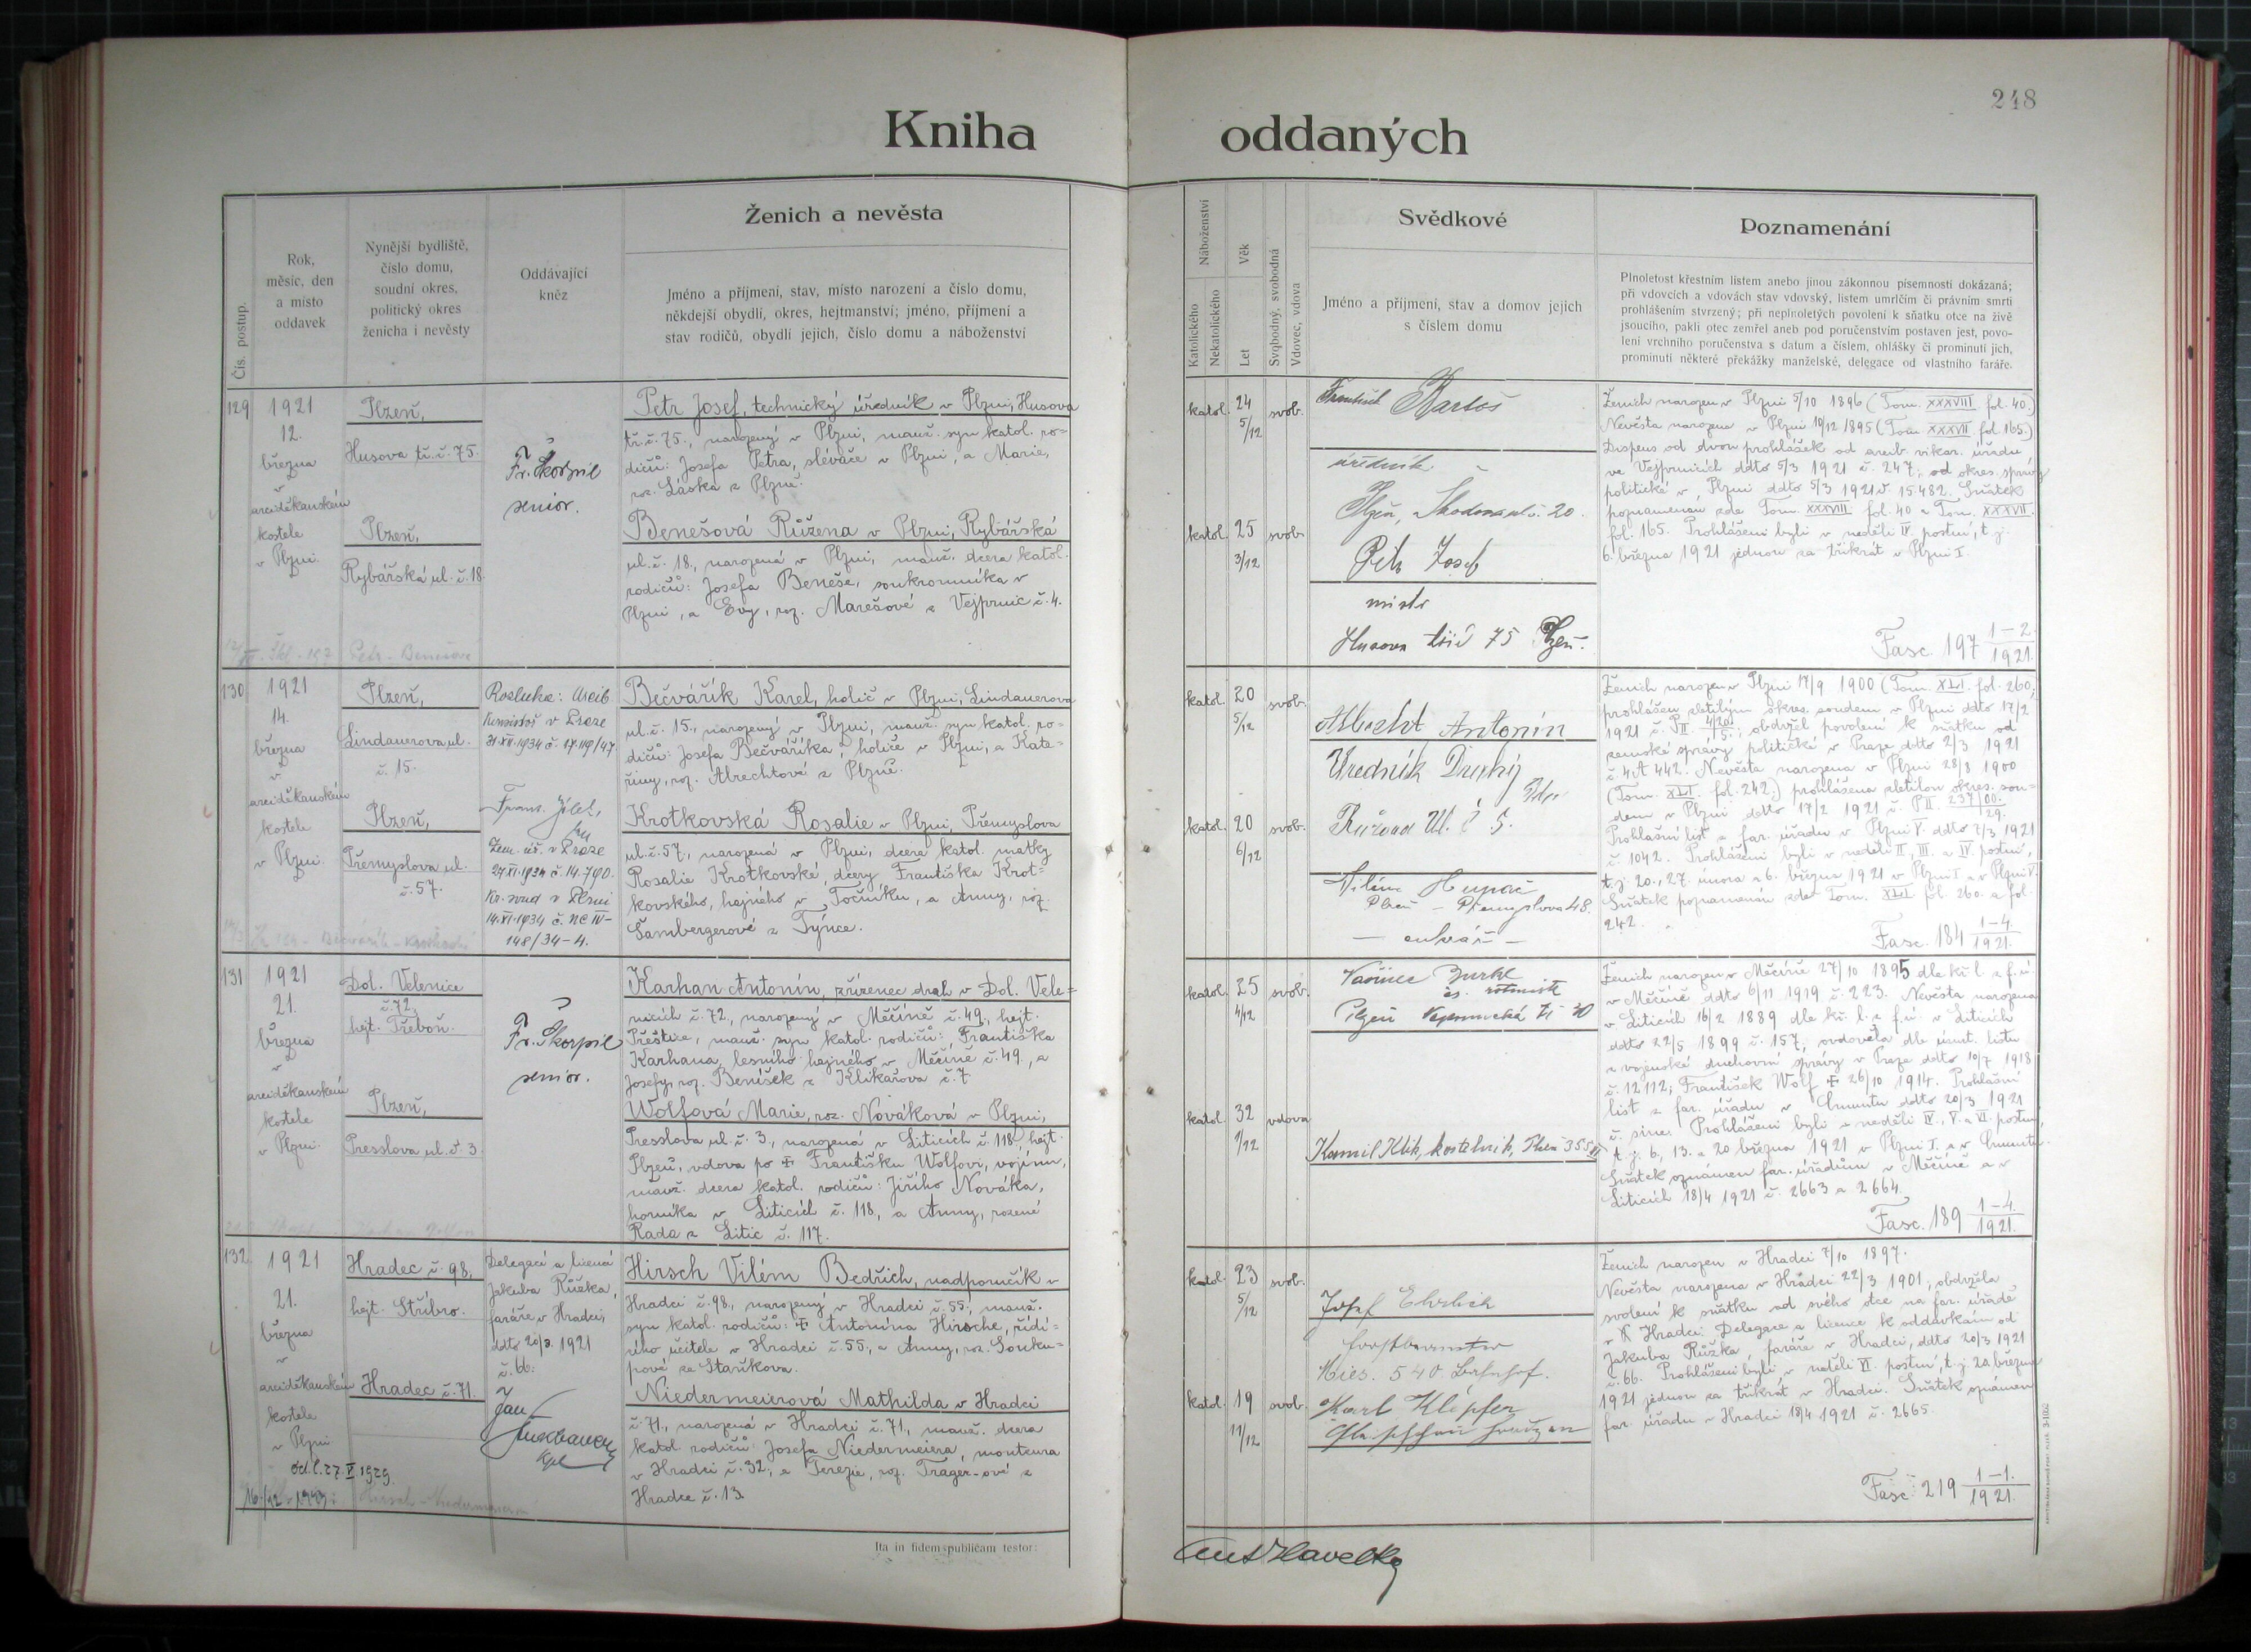 248
Kniha oddaných
Čís. postup.
Rok,
měsíc, den
a místo
oddavek
Nynější bydliště,
číslo domu,
soudní okres,
politický okres
ženicha i nevěsty
Oddávající
kněz
Ženich a nevěsta
Jméno a příjmení, stav, místo narození a číslo domu,
někdejší obydlí, okres, hejtmanství; jméno, příjmení a
stav rodičů, obydlí jejich, číslo domu a náboženství
Náboženství
Katolického
Nekatolického
Věk
Let
Svobodný, svobodná
Vdovec, vdova
Svědkové
Jméno a příjmení, stav a domov jejich
s číslem domu
Poznamenání
Plnoletost křestním listem anebo jinou zákonnou písemností dokázaná;
při vdovcích a vdovách stav vdovský, listem umrlčím či právním smrti
prohlášením stvrzený; při neplnoletých povolení k sňatku otce na živě
jsoucího, pakli otec zemřel aneb pod poručenstvím postaven jest, povo-
lení vrchního poručenstva s datum a číslem, ohlášky či prominutí jich,
prominutí některé překážky manželské, delegace od vlastního faráře.
129
1921
12.
března
v
arciděkanském
kostele
v Plzni.
Plzeň,
Husova tř. č. 75.
Plzeň,
Rybářská ul. č. 18
Petr - Benešová
Fr. Škorpil
senior.
Petr Josef, technický úředník v Plzni, Husova
tř. č. 75., narozený v Plzni, manž. syn katol. ro-
dičů: Josefa Petra, slévače v Plzni, a Marie,
roz. Láska z Plzně.
Benešová Růžena v Plzni, Rybářská
ul. č. 18., narozená v Plzni, manž. dcera katol.
rodičů: Josefa Beneše, soukromníka v
Plzni, a Evy, roz. Marešové z Vejprnic č. 4.
katol. 24 5/12 svob.
katol. 25 3/12 svob.
František Bartoš
úředník
Plzeň, Škodova ul. č. 20.
Petr Josef
mistr
Husova třída 75 Plzeň.
Ženich narozen v Plzni 5/10 1896 (Tom. XXXVIII fol. 40.)
Nevěsta narozena v Plzni 10/12 1895 (Tom. XXXVII fol. 165.)
Dispens od dvou prohlášek od arcib. vikar. úřadu
ve Vejprnicích ddto 5/3 1921 č. 247; od okres. správy
politické v Plzni ddto 5/3 1921 č. 15.482. Sňatek
poznamenán zde Tom. XXXVIII fol. 40 a Tom. XXXVII.
fol. 165. Prohlášeni byli v neděli IV. postní, t. j.
6. března 1921 jednou za třikrát v Plzni I.
Fasc. 197 1-2/1921.
130
1921
14.
března
v
arciděkanském
kostele
v Plzni.
Plzeň,
Lindauerova ul.
č. 15.
Plzeň,
Přemyslova ul.
č. 57.
Rozluka: Arcib.
Konsistoř v Praze
31.XII.1934 č. 17.119/47.
Zem. úř. v Praze
27.XI.1934 č. 14.790.
Kr. soud v Plzni
14.XI.1934 č. Nc IV-
148/34-4.
Bečvářík Karel, holič v Plzni, Lindauerova
ul. č. 15., narozený v Plzni, manž. syn katol. ro-
dičů: Josefa Bečvaříka, holiče v Plzni, a Kate-
řiny, roz. Albrechtové z Plzně.
Krotkovská Rosalie v Plzni, Přemyslova
ul. č. 57., narozená v Plzni, dcera katol. matky
Rosalie Krotkovské, dcery Františka Krot-
kovského, hajného v Točníku, a Anny, roz.
Šambergerové z Týnce.
katol. 20 5/12 svob.
katol. 20 6/12 svob.
Albrecht Antonín
Úředník Dráhy
Vilém Hupač
Plzeň - Přemyslova 48.
- cukrář -
Ženich narozen v Plzni 17/9 1900 (Tom. XLI. fol. 260;
prohlášen zletilým okres. soudem v Plzni ddto 17/2
1921 č. P II. 4/20/5.; obdržel povolení k sňatku od
zemské správy politické v Praze ddto 2/3 1921
č. 4 A 442. Nevěsta narozena v Plzni 28/8 1900
(Tom. XLI. fol. 242.) prohlášena zletilou okres. sou-
dem v Plzni ddto 17/2 1921 č. P II. 237/00./29.
Prohlašní list z far. úřadu v Plzni V. ddto 7/3 1921
č. 1042. Prohlášeni byli v neděli II, III. a IV. postní,
t. j. 20., 27. února a 6. března 1921 v Plzni I a v Plzni V.
Sňatek poznamenán zde Tom. XLI. fol. 260. a fol.
242.
Fasc. 184 1-4./1921.
131
1921
21.
března
v
arciděkanském
kostele
v Plzni.
Dol. Velenice
č. 72,
hejt. Třeboň.
Plzeň,
Presslova ul. č. 3.
Fr. Škorpil
senior.
Karhan Antonín, zřízenec drah v Dol. Vele-
nicích č. 72., narozený v Měčíně č. 49., hejt.
Přeštice, manž. syn katol. rodičů: Františka
Karhana, lesního hajného v Měčíně č. 49., a
Josefy, roz. Benišek z Klikařova č. 7
Wolfová Marie, roz. Nováková v Plzni,
Presslova ul. č. 3., narozená v Liticích č. 118, hejt.
Plzeň, vdova po ✠ Františku Wolfovi, vojínu,
manž. dcera katol. rodičů: Jiřího Nováka,
horníka v Liticích č. 118, a Anny, rozené
Rada z Litic č. 117.
katol. 25 4/12 svob.
katol. 32 1/12 vdova
čs. rotmistr
Kamil Klik, kostelník, Plzeň 355
Ženich narozen v Měčíně 27/10 1895 dle kř. l. z f. ú.
v Měčíně ddto 6/11 1919 č. 223. Nevěsta narozena
v Liticích 16/2 1889 dle kř. l. z f. ú. v Liticích
ddto 22/5 1899 č. 157, ovdověla dle úmrt. listu
z vojenské duchovní správy v Praze ddto 10/7 1918
č. 12112; František Wolf ✠ 26/10 1914. Prohlašní
list z far. úřadu v Gmuntu ddto 20/3 1921
č. sine. Prohlášeni byli v neděli IV., V. a VI. postní,
t. j. 6., 13. a 20 března 1921 v Plzni I. a v Gmuntu.
Sňatek oznámen far. úřadům v Měčíně a v
Liticích 18/4 1921 č. 2663 a 2664.
Fasc. 189 1-4./1921.
132.
1921
21.
března
v
arciděkanském
kostele
v Plzni
Hradec č. 98,
hejt. Stříbro.
Hradec č. 71.
Delegací a licencí
Jakuba Růžka,
faráře v Hradci,
ddto 20/3. 1921
č. 66:
Jan
Hirsch Vilém Bedřich, nadporučík v
Hradci č. 98., narozený v Hradci č. 55., manž.
syn katol. rodičů: ✠ Antonína Hirsche, řídí-
cího učitele v Hradci č. 55., a Anny, roz. Souku-
pové ze Staňkova.
Niedermeierová Mathilda v Hradci
č. 71., narozená v Hradci č. 71., manž. dcera
katol. rodičů: Josefa Niedermeiera, montéura
v Hradci č. 32, a Terezie, roz. Trager-ové z
Hradce č. 13.
katol. 23 5/12 svob.
katol. 19 11/12 svob.
Josef Ehrlich
Mies. 540 Bahnhof.
Karl Klepfer
Ženich narozen v Hradci 7/10 1897.
Nevěsta narozena v Hradci 22/3 1901, obdržela
svolení k sňatku od svého otce na far. úřadě
v Hradci. Delegace a licence k oddavkám od
Jakuba Růžka, faráře v Hradci, ddto 20/3 1921
č. 66. Prohlášeni byli v neděli VI. postní, t. j. 20 března
1921 jednou za třikrát v Hradci. Sňatek oznámen
far. úřadu v Hradci 18/4 1921 č. 2665.
Fasc. 219 1-1./1921.
Ita in fidem publicam testor:
Ant Havelka